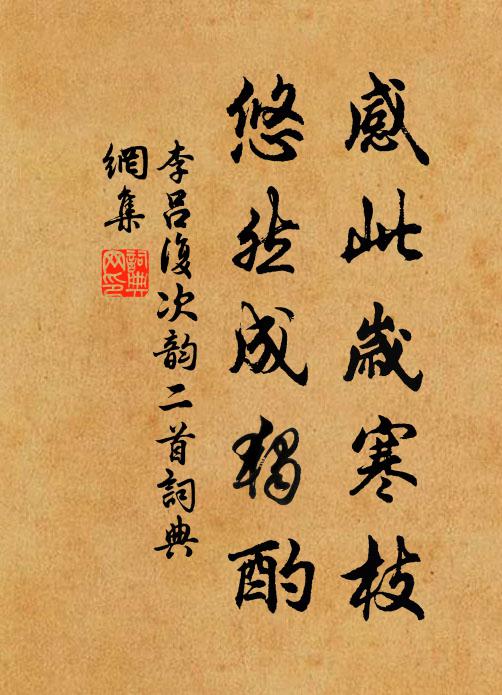 感此歲寒枝
悠然成獨酌
李呂復次韵二首詞典
網集
詞典
网印